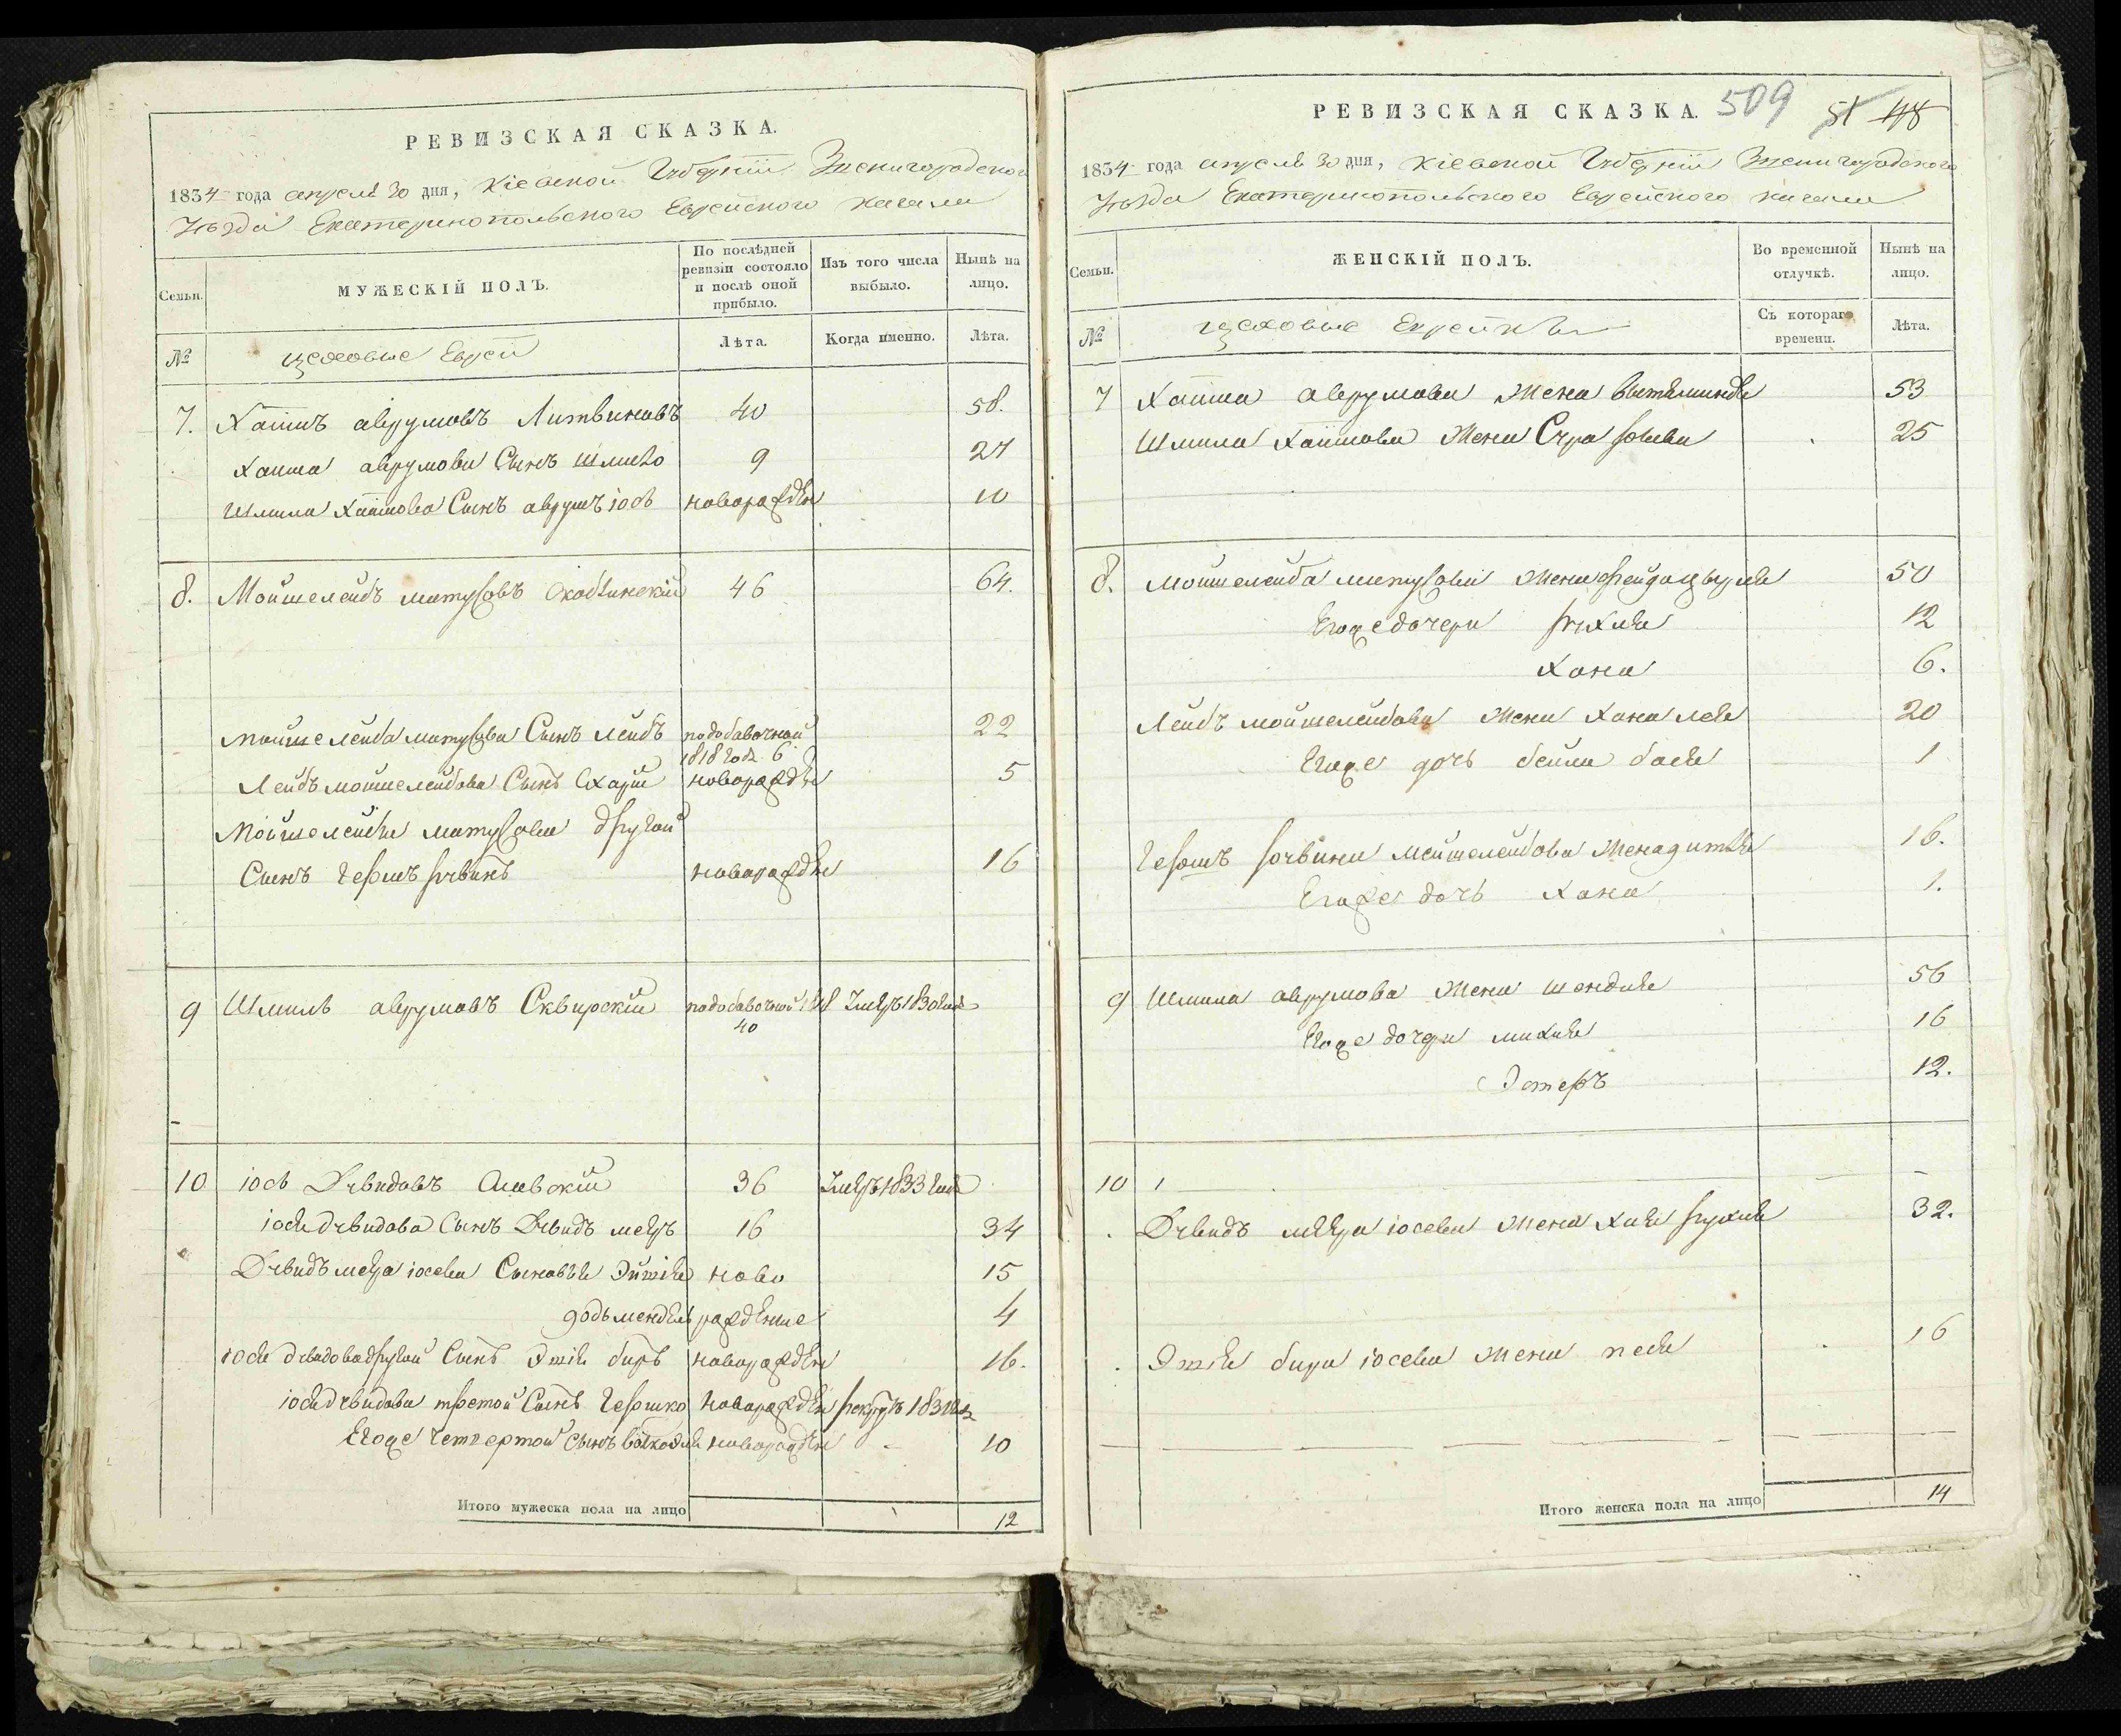 РЕВИЗСКАЯ СКАЗКА.
1834 года апреля 30 дня, Кіевской Губерніи Звенигородского
Уѣзда Екатеринопольского Еврейского кагала
Семьи. МУЖЕСКІЙ ПОЛЪ. По послѣдней ревизіи состояло и послѣ оной прибыло. Изъ того числа выбыло. Нынѣ на лицо.
№ цеховые Евреи Лѣта. Когда именно. Лѣта.
7. Хаимъ аврумовъ Литвиновъ 40 58.
Хаима аврумова Сынъ Шмило 9 27
Шмила Хаимова Сынъ аврумъ іось новорожден 10
8. Мойшелейбъ матусовъ 46 64.
Мойшелейба матусова Сынъ Лейбъ по добавочной 22
1818 года 6
Лейбъ мойшелейбова Сынъ новорожден 5
Мойшелейба матусова другой
Сынъ Гершъ рувинъ новорожден 16
9 Шмиль аврумовъ Сквирскій по добавочной 1818 Умеръ 1830 года
40
10 іось Дувидовъ 36 Умеръ 1833 года
іося дувидова Сынъ Дувидъ мееръ 16 34
Дувидъ меера іосева Сыновья ново 15
рожденые 4
іося дувидова другой Сынъ беръ новорожден 16.
іося дувидова третой Сынъ Гершко новорожден рекрутъ 183
Егоже Четвертой сынъ новорожден - 10
Итого мужеска пола на лицо 12
РЕВИЗСКАЯ СКАЗКА. 509 51 48
1834 года апреля 30 дня, Кіевской Губерніи Звенигородского
Уѣзда Екатеринопольского Еврейского кагала
Семьи. ЖЕНСКІЙ ПОЛЪ. Во временной отлучкѣ. Нынѣ на лицо.
№ цеховые Еврейки Съ котораго времени. Лѣта.
7 Хаима аврумова Жена 53
Шмила Хаимова Жена Сура 25
8. Мойшелейба матусова Жена 50
Егоже дочери рухля 12
Хана 6.
Лейбъ мойшелейбова Жена Хана лея 20
Егоже дочь бейла бася 1
Гершъ рувина мойшелейбова Жена 16.
Егоже дочь Хана 1.
9 Шмила аврумова Жена шендля 56
Егоже дочери 16
Эстеръ 12.
10
Дувидъ меера іосева Жена Хая рухля 32.
бера іосева Жена песя 16
Итого женска пола на лицо 14